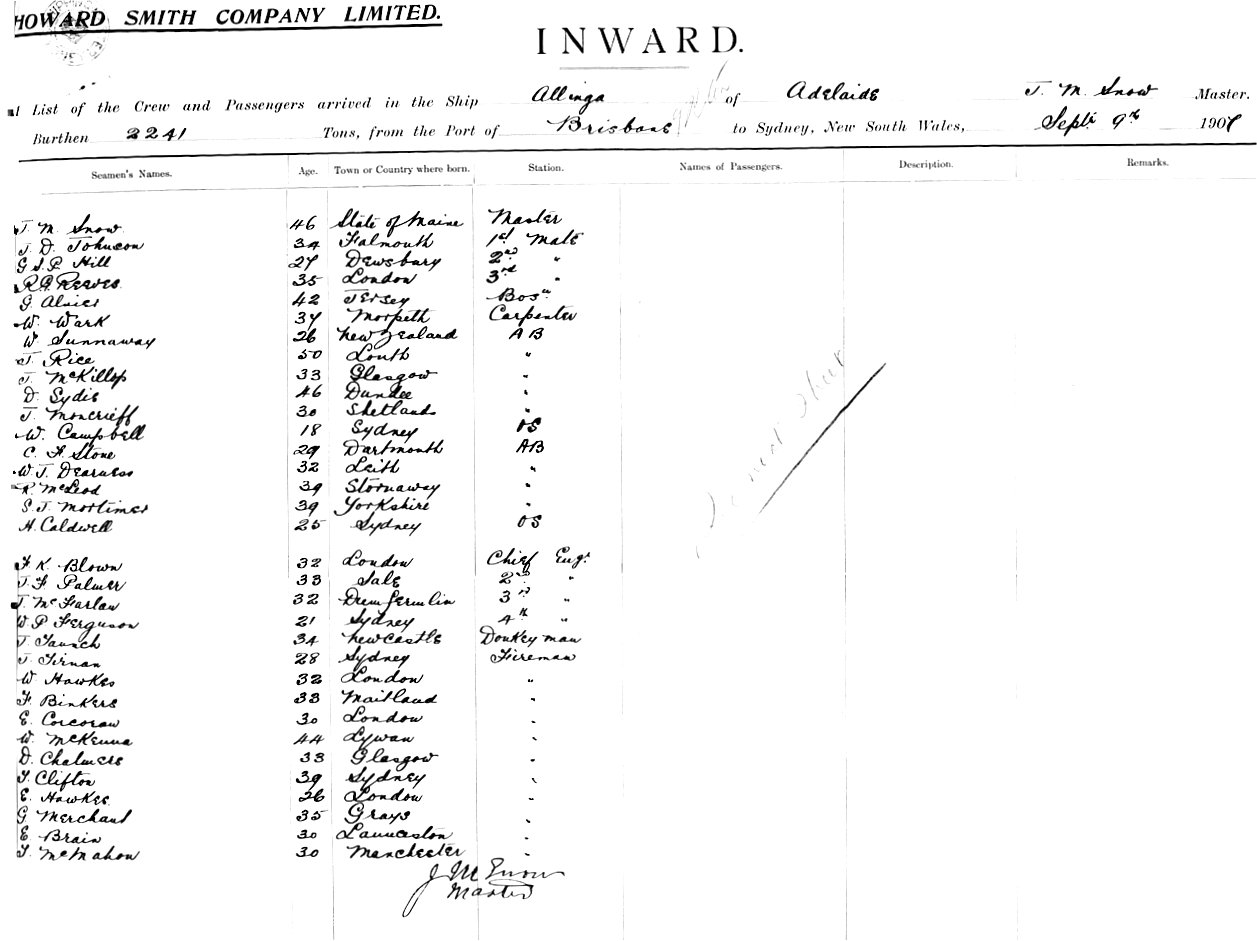 HOWARD SMITH COMPANY LIMITED.
INWARD.
List of the Crew and Passengers arrived in the Ship Allinga of Adelaide J. M. Snow Master.
Burthen 2241 Tons, from the Port of Brisbane to Sydney, New South Wales, Sept. 9th 1907
Seamen's Names. Age. Town or Country where born. Station. Names of Passengers. Description. Remarks.
J. M. Snow 46 State of Maine Master
J. D. Johnson 34 Falmouth 1st Mate
G S. P. Hill 27 Dewsbury 2nd "
R. G. Reeves 35 London 3rd "
G. Alvier 42 Jersey Bosn
W. Wark 37 Morpeth Carpenter
W. Sunnaway 26 New Zealand AB
J. Rice 50 Louth "
J. McKillop 33 Glasgow "
D. Sydie 46 Dundee "
J. Moncrieff 30 Shetlands "
W. Campbell 18 Sydney OS
C. F. Stone 29 Dartmouth AB
W. J. Dearness 32 Leith "
R. McLeod 39 Stornaway "
S. J. Mortimer 39 Yorkshire "
H. Caldwell 25 Sydney OS
F. K. Blown 32 London Chief Engr
J. F. Palmer 33 Sale 2nd "
J. McFarlan 32 Drumfermlin 3rd "
W. P. Ferguson 21 Sydney 4th "
J. Taunch 34 Newcastle Donkeyman
J. Tirnan 28 Sydney Fireman
W Hawkes 32 London "
F. Binkers 33 Maitland "
E. Corcoran 30 London "
W. McKenna 44 Lywan "
D. Chalmers 33 Glasgow "
T. Clifton 39 Sydney "
E. Hawkes 26 London "
G Merchant 35 Grays "
E. Brain 30 Launceston "
T. McMahon 30 Manchester "
J M Snow
Master